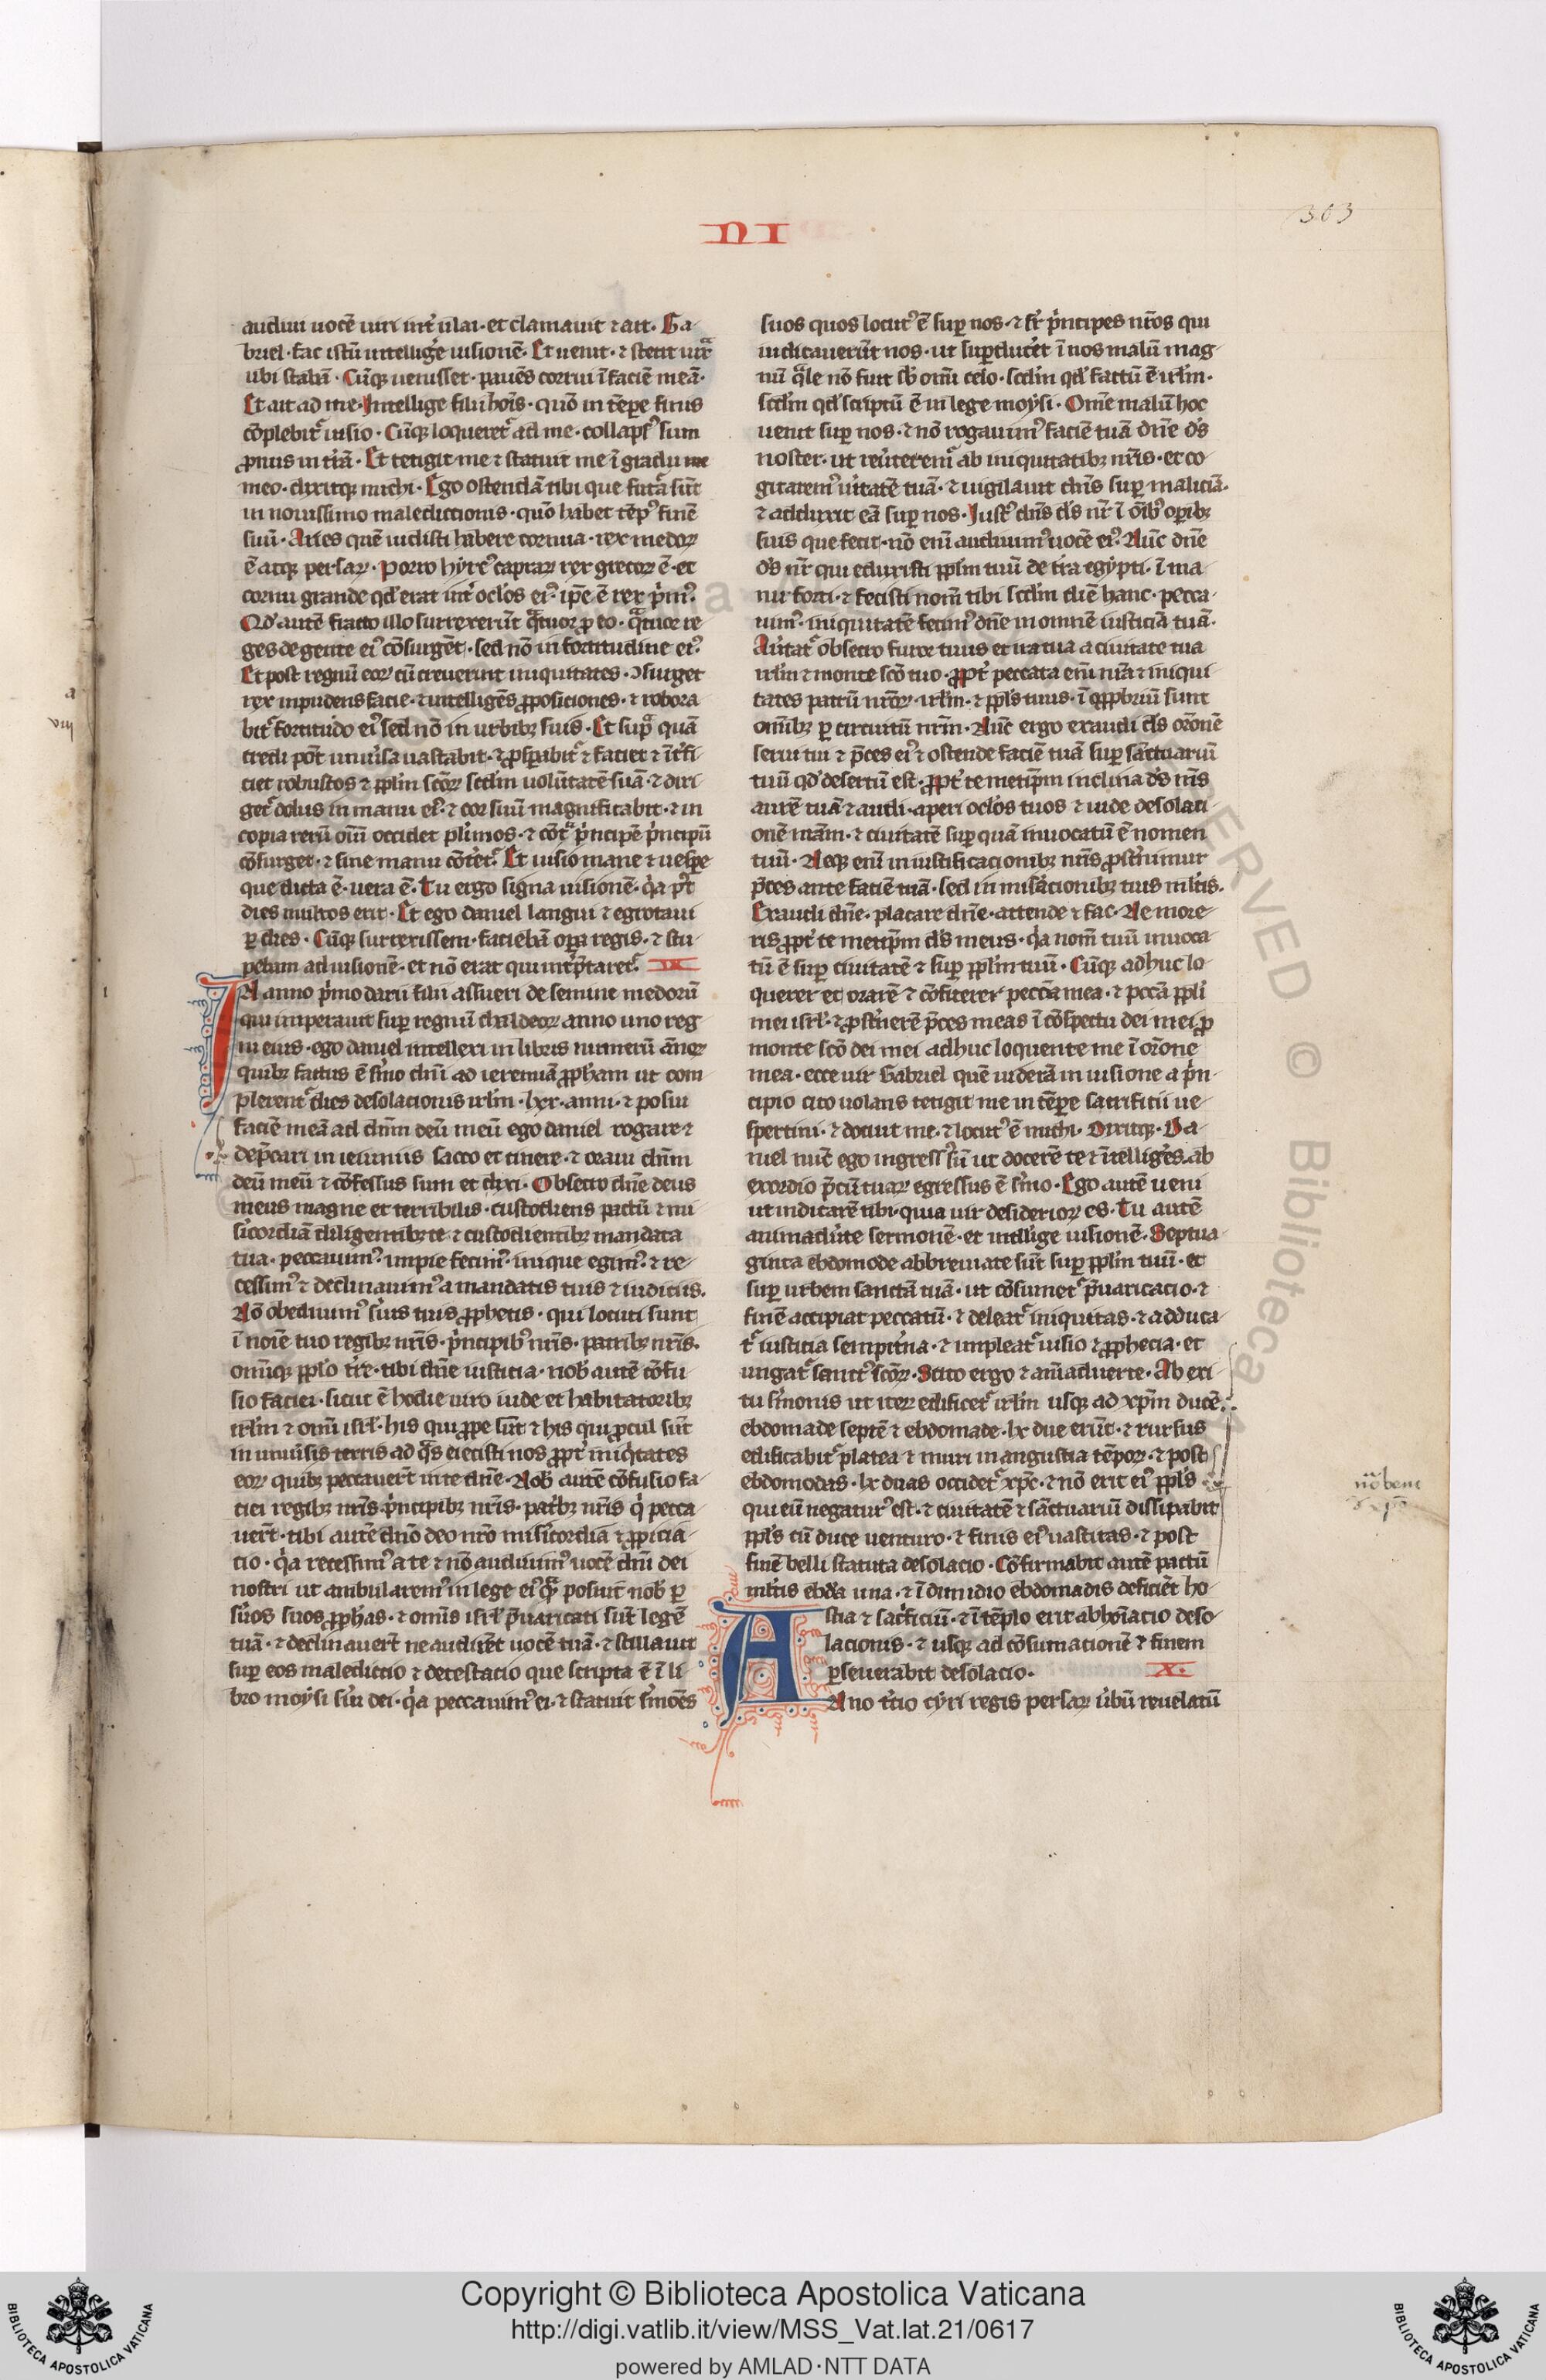 NI
303
audiui uocē uiri int᷑ ulai · et clamauit ⁊ ait · Ga-
briel · fac istū intellig᷑e uisionē · Et uenit · ⁊ stetit iux̄
ubi stabā · Cūq; uenisset · pauēs corrui ī faciē meā ·
Et ait ad me · Intellige fili hoīs · quō in tēpe finis
cōplebit᷑ uisio · Cūq; loqueret᷑ ad me · collapsꝰ sum
ꝓnus in t᷑rā · Et tetigit me ⁊ statuit me ī gradu me
meo · dixitq; michi · Ego ostendā tibi que futa᷑ sūt
in nouissimo maledictionis · quō habet tēpꝰ finē
suū · Aries quē uidisti habere cornua · rex medoꝝ
ē atq; persaꝝ · Porro hyrcꝰ capraꝝ rex grecoꝝ ē · et
cornu grande qd' erat int᷑ oclos eiꝰ · ipē ē rex p᷑mꝰ ·
Qd' autē fracto illo surrexerūt q̄tuor ꝓ eo · q̄tuor re-
ges de gente eiꝰ cōsurgēt · sed nō in fortitudine eiꝰ ·
Et post regnū eoꝝ cū creuerint iniquitates · ↄsurget
rex inpudens facie · ⁊ intelligēs ꝓposiciones · ⁊ robora
bit᷑ fortitudo eiꝰ sed nō in uribꝫ suis · Et sup̄ quā
credi pōt uniu᷑sa uastabit · ⁊ ꝓspabit᷑ ⁊ faciet ⁊ īt᷑fi-
ciet robustos ⁊ pplm scōꝝ scd'm uolūtatē suā · ⁊ diri
get᷑ dolus in manu eiꝰ · ⁊ cor suū magnificabit · ⁊ in
copia rerū oīū occidet pl᷑imos · ⁊ cōt̄ p᷑ncipē p᷑ncipū
cōsurget · ⁊ sine manu cōt᷑et᷑ · Et uisio mane ⁊ uespe
que dicta ē · uera ē · Tu ergo signa uisionē · q᷑a p᷑t
dies multos erit · Et ego daniel langui ⁊ egrotaui
ꝑ dies · Cūq; surrexissem · faciebā opa regis · ⁊ stu-
pebam ad uisionē · et nō erat qui int᷑p᷑taret᷑ · IX
In anno p᷑mo darii filii assueri de semine medorū
qui imperauit sup regnū chaldeoꝝ anno uno reg
ni eius · ego daniel intellexi in libris numerū ānoꝝ
quibꝫ factus ē s᷑mo dn̄i ad ieremiā ꝓpham ut com
plerent᷑ dies desolacionis irlm̄ · lxx · anni · ⁊ posui
faciē meā ad dn̄m deū meū ego daniel rogare ⁊
dep᷑cari in ieiuniis sacco et cinere · ⁊ oraui dn̄m
deū meū ⁊ cōfessus sum et dixi · Obsecro dn̄e deus
meus magne et terribilis · custodiens pactū ⁊ mi
s᷑icordiā diligentibꝫ te ⁊ custodientibꝫ mandata
tua · peccauimꝰ · impie fecimꝰ · inique egimꝰ · ⁊ re-
cessimꝰ ⁊ declinauimꝰ a mandatis tuis ⁊ iudiciis ·
Nō obediuimꝰ s᷑uis tuis ꝓphetis · qui locuti sunt
ī noīe tuo regibꝫ nr̄is · p᷑ncipibꝰ nr̄is · patribꝫ nr̄is ·
omīq; pplo t᷑re · tibi dn̄e iusticia · nob' autē cōfu-
sio faciei · sicut ē hodie uiro iude et habitatoribꝫ
irlm̄ ⁊ omī isrl' · his qui ꝓpe sūt ⁊ his qui ꝓcul sūt
in uniu᷑sis terris ad q̄s eiecisti nos ꝓpt᷑ iniq᷑tates
eoꝝ quibꝫ peccauer̄t in te dn̄e · Nob' autē cōfusio fa-
ciei regibꝫ nr̄is · p᷑ncipibꝫ nr̄is · pat᷑bꝫ nr̄is q᷑ pecca-
uer̄t · tibi autē dn̄o deo nr̄o mis᷑icordia ⁊ ꝓpicia-
tio · q᷑a recessimꝰ a te ⁊ nō audiuimꝰ uocē dn̄i dei
nostri ut ambularemꝰ in lege eiꝰ q̄ posuit nob' ꝑ
s᷑uos suos ꝓphas · ⁊ omīs isrl' p᷑uaricati sūt legē
tuā · ⁊ declinauer̄t ne audirēt uocē tuā · ⁊ stillauit
sup eos maledictio ⁊ detestacio que scripta ē ī li-
bro moysi s᷑ui dei · q᷑a peccauimꝰ ei · ⁊ statuit s᷑mōes
suos quos locutꝰ ē sup nos · ⁊ sr̄ p᷑ncipes nr̄os qui
iudicauerūt nos · ut supduc᷑et ī nos malū mag-
nū q̄le nō fuit sb' omī celo · scd'm qd' factū ē irlm̄ ·
scd'm qd' scriptū ē in lege moysi · Omē malū hoc
uenit sup nos · ⁊ nō rogauimꝰ faciē tuā dn̄e d's
noster · ut reu᷑terem᷑ ab iniquitatibꝫ nr̄is · et co-
gitaremꝰ u᷑itatē tuā · ⁊ uigilauit dn̄s sup maliciā ·
⁊ adduxit eā sup nos · Iustꝰ dn̄s d's nr̄ ī ōibꝰ opibꝫ
suis que fecit · nō enī audiuimꝰ uocē eiꝰ · Nūc dn̄e
d's nr̄ qui eduxisti pplm tuū de t᷑ra egypti · ī ma-
nu forti · ⁊ fecisti nom̄ tibi scd'm diē hanc · pecca-
uimꝰ · iniquitatē fecimꝰ dn̄e in omnē iusticiā tuā ·
Au᷑tat᷑ obsecro furor tuus et ira tua a ciuitate tua
irlm̄ ⁊ monte scō tuo · ꝓpt᷑ peccata enī nr̄a ⁊ iniqui-
tates patrū nr̄oꝝ · irlm̄ · ⁊ ppls tuus · ī opꝓbriū sunt
omībꝫ ꝑ circuitū nr̄m · Nūc ergo exaudi d's orōnē
serui tui ⁊ p᷑ces eiꝰ ⁊ ostende faciē tuā sup sāctuariū
tuū qd' desertū est · ꝓpt᷑ temetip̄m inclina d's m̄s
aurē tuā ⁊ audi · aperi oclos tuos ⁊ uide desolaci-
onē nr̄am · ⁊ ciuitatē sup quā inuocatū ē nomen
tuū · Neq; enī in iustificacionibꝫ nr̄is ꝓst᷑nimur
p᷑ces ante faciē tuā · sed in mis᷑acionibꝫ tuis mltis ·
Exaudi dn̄e · placare dn̄e · attende ⁊ fac · Ne more-
ris ꝓpt᷑ te metip̄m d's meus · q᷑a nom̄ tuū inuoca-
tū ē sup ciuitatē ⁊ sup pplm tuū · Cūq; adhuc lo-
querer et orarē ⁊ cōfiterer pecc̄a mea · ⁊ pcc̄a ppli
mei isrl' · ⁊ ꝓst᷑nerē p᷑ces meas ī cōspectu dei mei ꝓ
monte scō dei mei adhuc loquente me ī orōne
mea · ecce uir Gabriel quē uiderā in uisione a p᷑n-
cipio cito uolans tetigit me in tēpe sacrificii ue-
spertini · ⁊ docuit me · ⁊ locutꝰ ē michi · Dixitq; · Da-
niel nūc ego ingressꝰ sū ut docerē te ⁊ ītellig᷑es · ab
exordio p᷑cū tuaꝝ egressus ē s᷑mo · Ego autē ueni
ut indicarē tibi · quia uir desiderioꝝ es · Tu autē
animadu᷑te sermonē · et intellige uisionē · Septua-
ginta ebdomode abbreuiate sūt sup pplm tuū · et
sup urbem sanctā tuā · ut cōsumet᷑ p᷑uaricacio · ⁊
finē accipiat peccatū · ⁊ deleat᷑ iniquitas · ⁊ adduca
t᷑ iusticia sempit᷑na · ⁊ impleat᷑ uisio ⁊ ꝓphecia · et
ungat᷑ sanctꝰ scōꝝ · Scito ergo ⁊ aīaduerte · Ab exi-
tu s᷑monis ut iteꝝ edificet᷑ irlm̄ usq; ad xp̄m ducē ·
ebdomade septē ⁊ ebdomade · lx due erūt · ⁊ rursus
edificabit᷑ platea ⁊ muri in angustia tēpoꝝ · ⁊ post
ebdomodas · lx duas occidet᷑ xp̄c · ⁊ nō erit eiꝰ ppls
qui eū negaturꝰ est · ⁊ ciuitatē ⁊ sāctuariū dissipabit
ppls cū duce venturo · ⁊ finis eiꝰ uastitas · ⁊ post
finē belli statuta desolacio · Cōfirmabit autē pactū
mltis ebd'a una · ⁊ ī dimidio ebdomadis deficiēt ho-
stia ⁊ sac᷑ficiū · ⁊ ī tēplo erit abhoīacio deso-
lacionis · ⁊ usq; ad cōsumationē ⁊ finem
ꝑseuerabit desolacio · X ·
Ano t᷑cio cyri regis persaꝝ u᷑bū reuelatū
a
viij
Copyright © Biblioteca Apostolica Vaticana
http://digi.vatlib.it/view/MSS_Vat.lat.21/0617
powered by AMLAD·NTT DATA
BIBLIOTECA APOSTOLICA VATICANA
BIBLIOTECA APOSTOLICA VATICANA